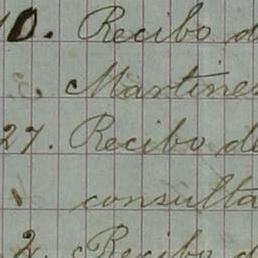 10. Recibo d
Martines
27. Recibo de
consulta
2. Recibo d